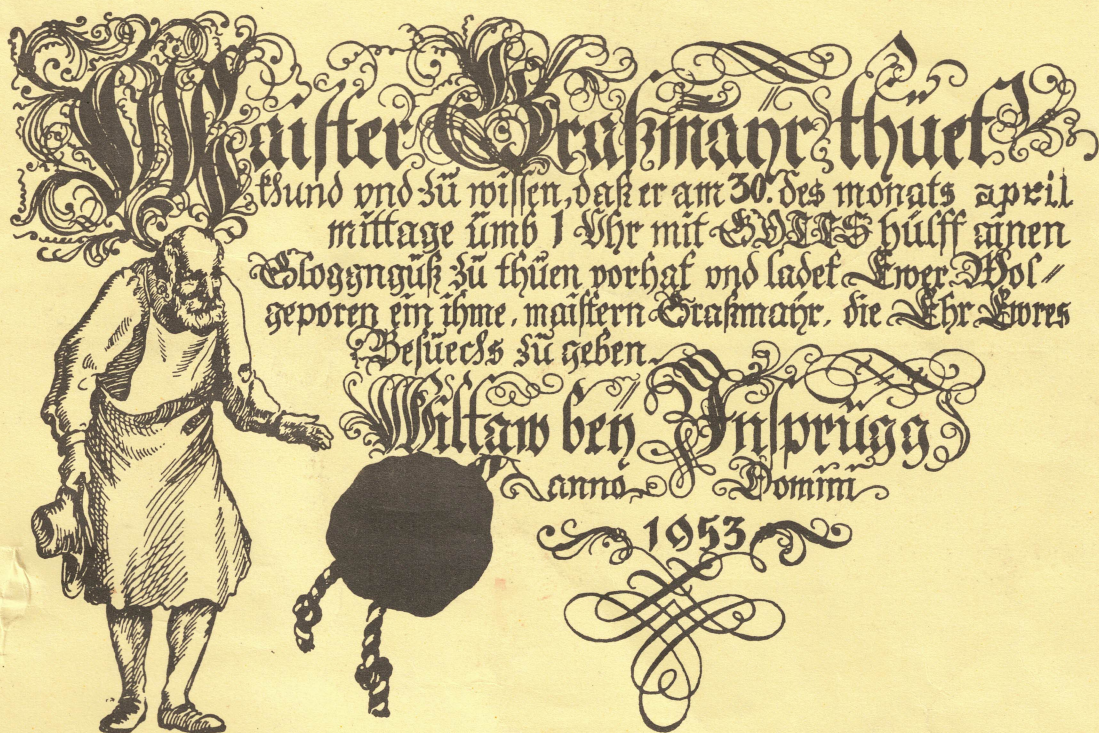 Maister Graßmayr thüet
khund vnd zü wissen, daß er am 30. des monats april
mittage ümb 1 Vhr mit GOTTS hülff ainen
Gloggngüß zü thüen vorhat vnd ladet Ewer Wol⸗
geporen ein ihme, maistern Graßmahr, die Ehr Ewres
Besuechs zü geben.
Wiltaw bey Ynsprügg
anno Domini
1953